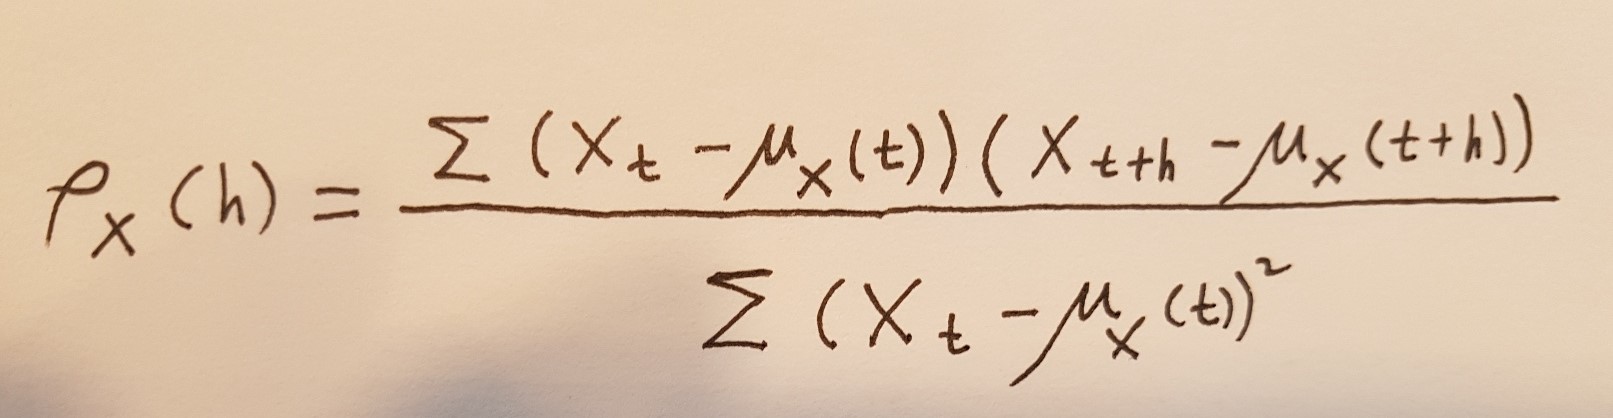 ρ_X(h) = \frac{Σ(X_t - μ_X(t))(X_{t+h} - μ_X(t+h))}{Σ(X_t - μ_X(t))^2}